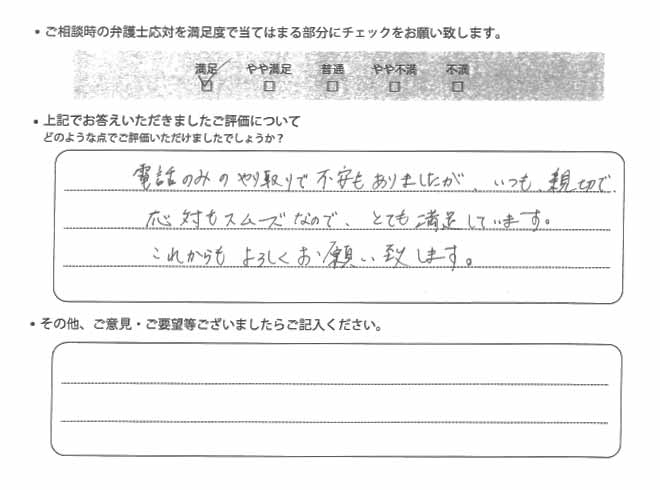 ・ご相談時の弁護士応対を満足度で当てはまる部分にチェックをお願い致します。
満足 やや満足 普通 やや不満 不満
☑ □ □ □ □
・上記でお答えいただきましたご評価について
どのような点でご評価いただけましたでしょうか？
電話のみのやり取りで不安もありましたが、いつも、親切で
応対もスムーズなので、とても満足しています。
これからもよろしくお願い致します。
・その他、ご意見・ご要望等ございましたらご記入ください。